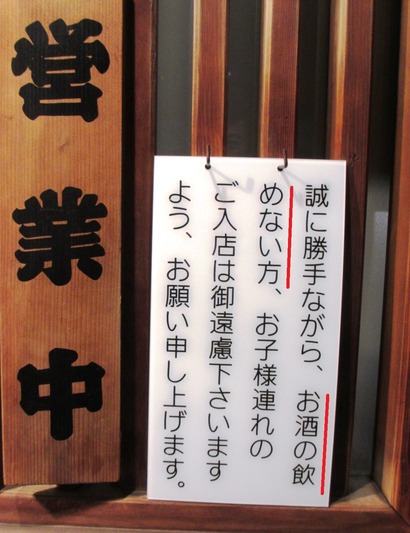 営業中
誠に勝手ながら、お酒の飲
めない方、お子様連れの
ご入店は御遠慮下さいます
よう、お願い申し上げます。